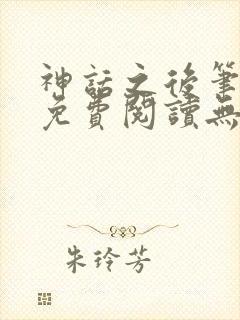 神話之後筆
免費閱讀無
朱玲芳